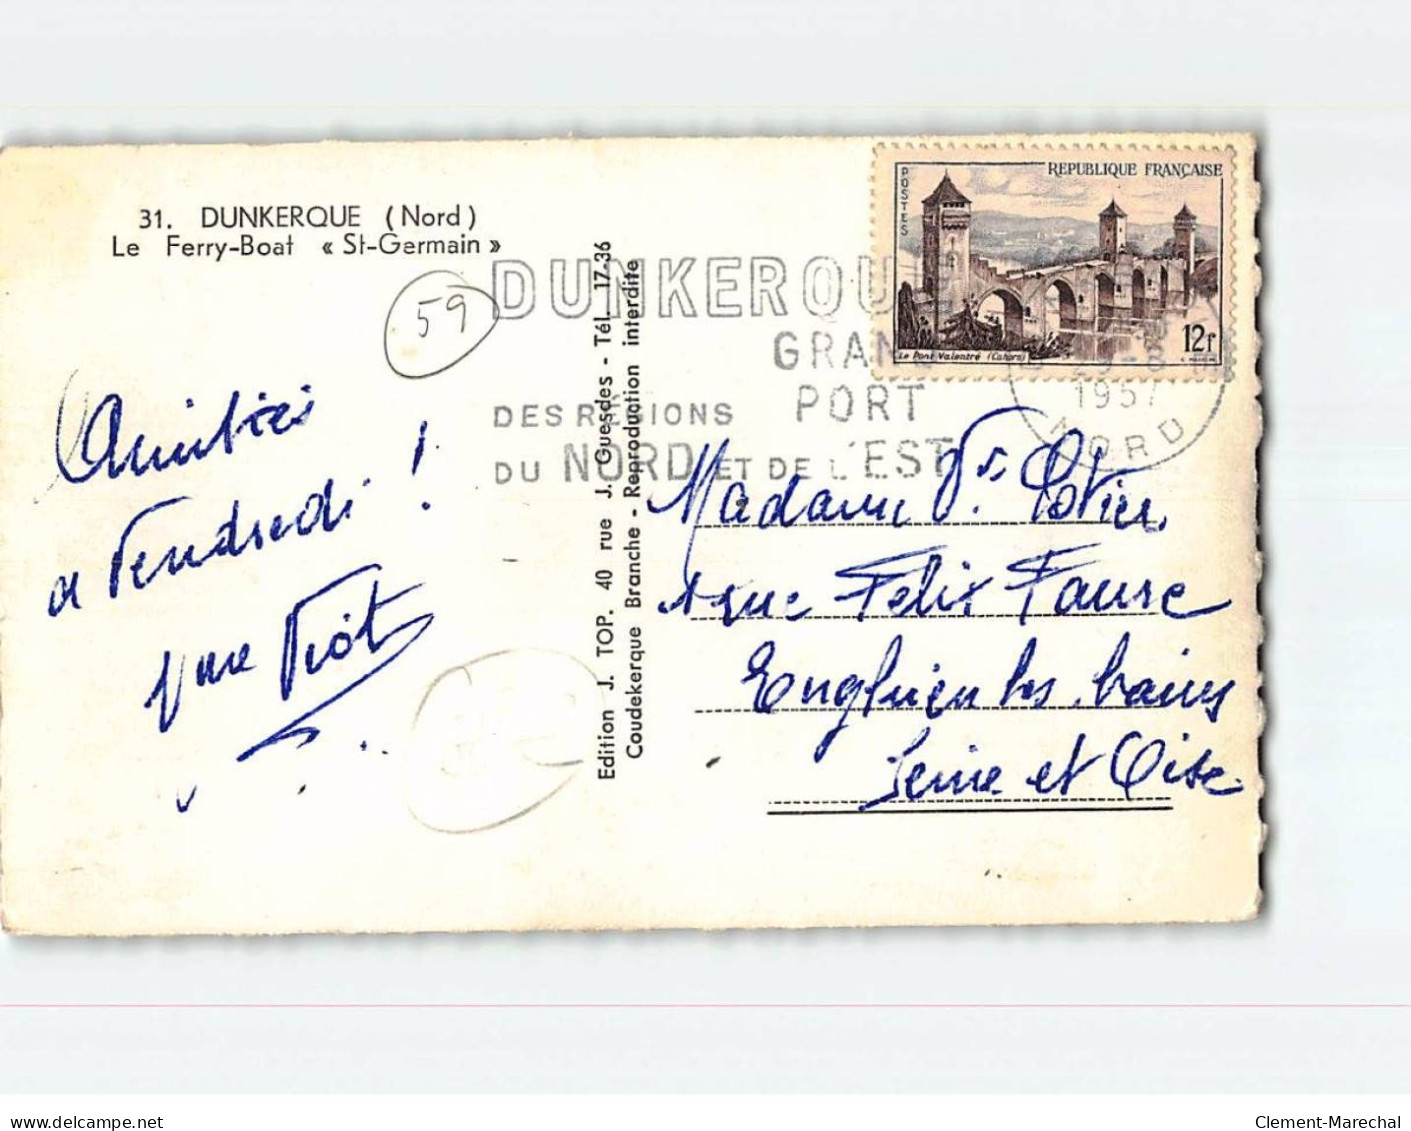 31. DUNKERQUE (Nord)
Le Ferry-Boat « St-Germain »
59
Amitiés
a Vendredi !
Edition J. TOP. 40 rue J. Guesdes - Tél. 17-36
Coudekerque Branche - Reproduction interdite
DUNKERQUE
GRAND
PORT
DES RÉGIONS
DU NORD ET DE L'EST
POSTES
REPUBLIQUE FRANÇAISE
Le Pont Valentré (Cahors)
12f
1957
NORD
Madame
rue Felix Faure
Enghien les bains
Seine et Oise
delcampe.net
Clement-Marechal